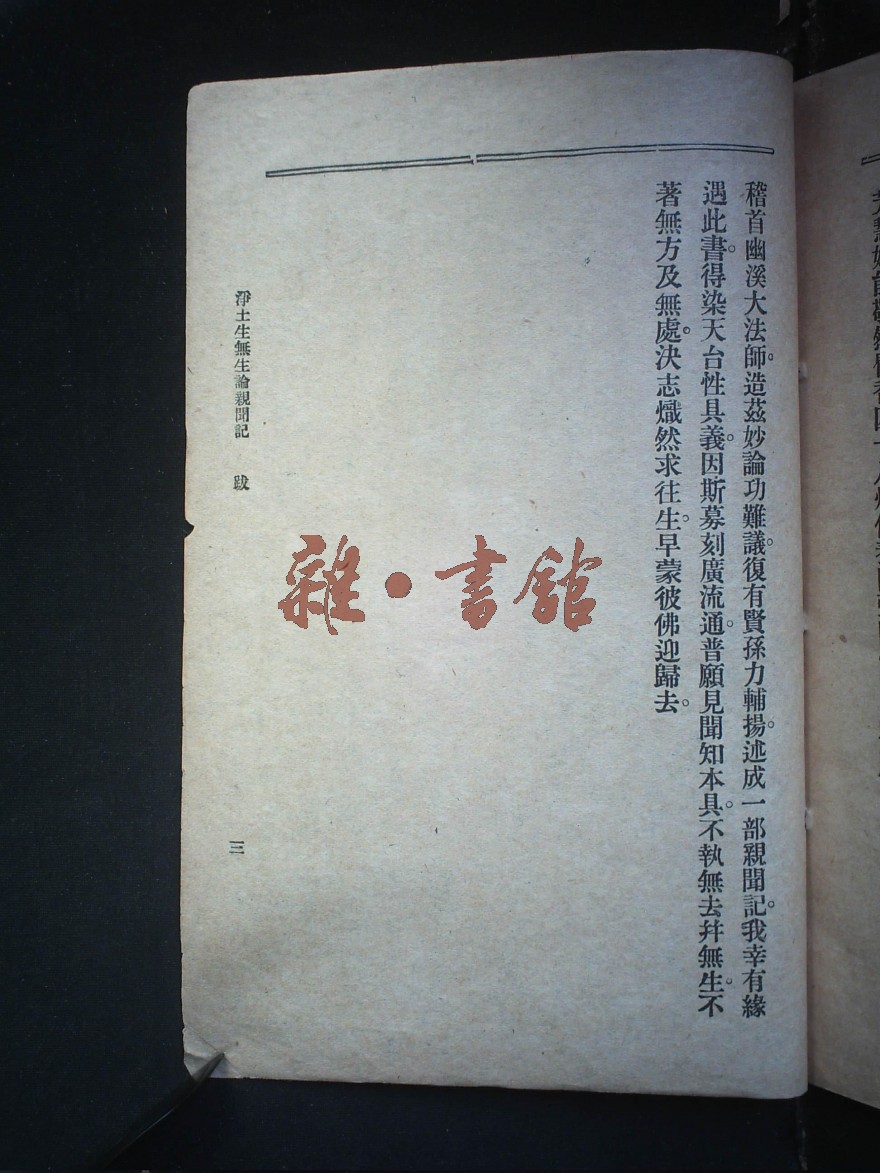 稽首幽溪大法師。造茲妙論功難議。復有賢孫力輔揚。述成一部親聞記。我幸有緣
遇此書。得染天台性具義。因斯募刻廣流通。普願見聞知本具。不執無去幷無生。不
著無方及無處。決志熾然求往生。早蒙彼佛迎歸去。
淨土生無生論親聞記 跋
三
雜·書館